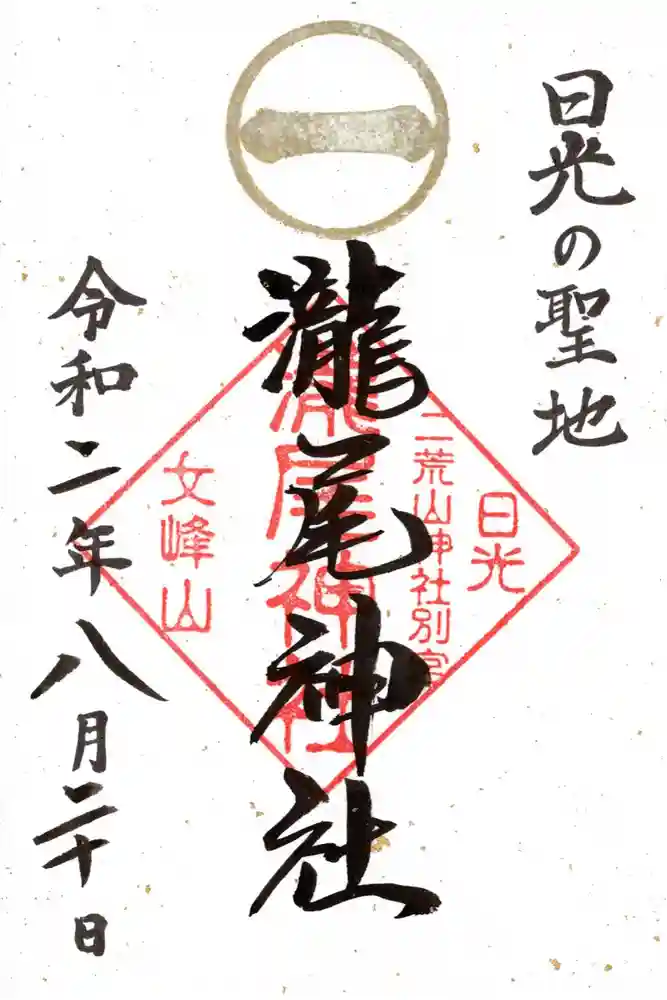 日光の聖地
瀧尾神社
日光
二荒山神社別宮
瀧尾神社
女峰山
令和二年八月二十日